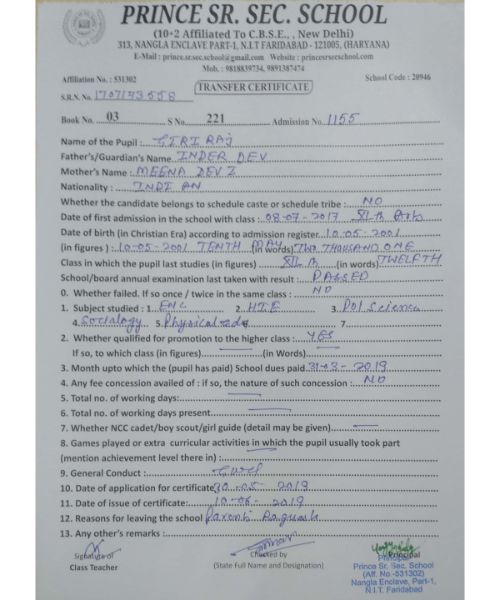 PRINCE SR. SEC. SCHOOL
(10+2 Affiliated To C.B.S.E., , New Delhi)
313, NANGLA ENCLAVE PART-1, N.I.T FARIDABAD - 121005, (HARYANA)
E-Mail : prince.sr.sec.school@gmail.com Website : princesrsecschool.com
Mob. : 9818839734, 9891387474
Affiliation No. : 531302 School Code : 20946
TRANSFER CERTIFICATE
S.R.N. No. 1707143558
Book No. 03 S No. 221 Admission No. 1155
Name of the Pupil : GIRI RAJ
Father's/Guardian's Name INDER DEV
Mother's Name : MEENA DEVI
Nationality : INDIAN
Whether the candidate belongs to schedule caste or schedule tribe : NO
Date of first admission in the school with class : 08-07-2017 XI th Arts
Date of birth (in Christian Era) according to admission register 10-05-2001
(in figures) : 10-05-2001 TENTH MAY (in words) TWO THOUSAND ONE
Class in which the pupil last studies (in figures) XII th (in words) TWELFTH
School/board annual examination last taken with result : PASSED
0. Whether failed. If so once / twice in the same class : NO
1. Subject studied : 1. ENG 2. HIE 3. Pol Science
4. Sociology 5. Physical edu 7.
2. Whether qualified for promotion to the higher class : YES
If so, to which class (in figures) (in Words)
3. Month upto which the (pupil has paid) School dues paid 31-03-2019
4. Any fee concession availed of : if so, the nature of such concession : NO
5. Total no. of working days:
6. Total no. of working days present
7. Whether NCC cadet/boy scout/girl guide (detail may be given)
8. Games played or extra curricular activities in which the pupil usually took part
(mention achievement level there in) :
9. General Conduct : Good
10. Date of application for certificate 30-05-2019
11. Date of issue of certificate: 10-06-2019
12. Reasons for leaving the school Parents Request
13. Any other's remarks :
Signature of Checked by Principal
Class Teacher (State Full Name and Designation) Prince Sr. Sec. School
(Aff. No -531302)
Nangla Enclave, Part-1,
N.I.T. Faridabad